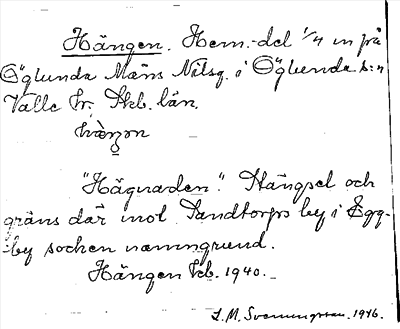 Hängen. Hem.-del 1/4 m på
Öglunda Måns Nilsg. i Öglunda s:n
Valle hr. Skb. län.
"Hägnaden". Stängsel och
gräns där mot Sandtorps by i Egg-
by socken namngrund.
Hängen kb. 1940.
L. M. Svenungsson. 1946.